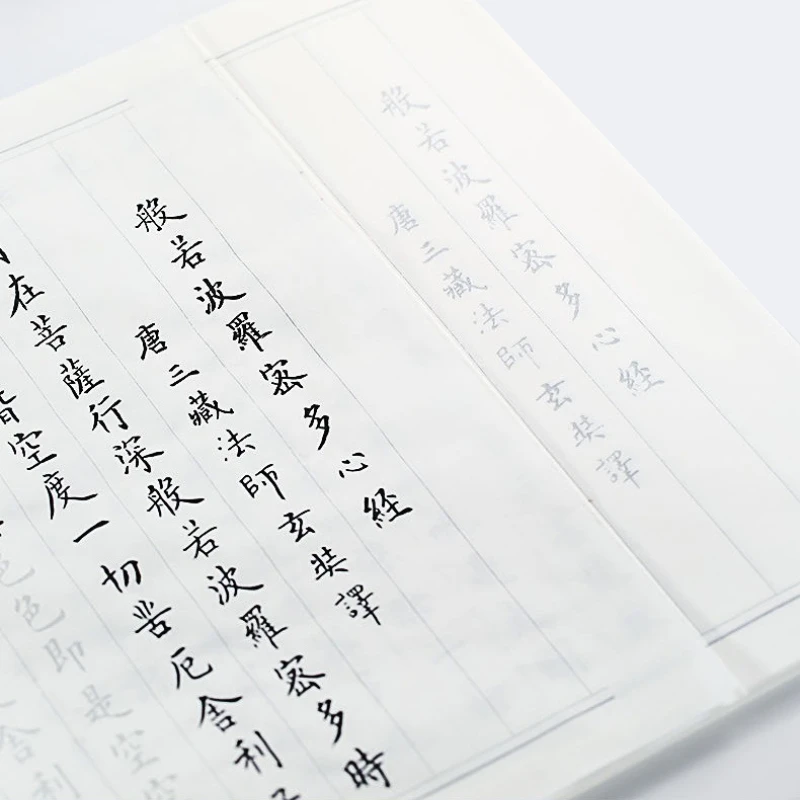 般若波羅密多心経
唐三藏法師玄奘譯
般若波羅密多心経
唐三藏法師玄奘譯
在菩薩行深般若波羅密多時
皆空度一切苦厄舍利
色色即是空空
舍利